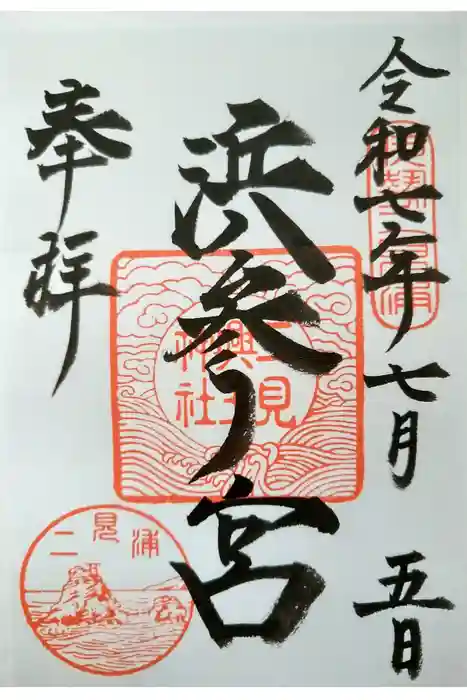 令和七年七月五日
浜参宮
奉拝
二見興玉神社
二見浦